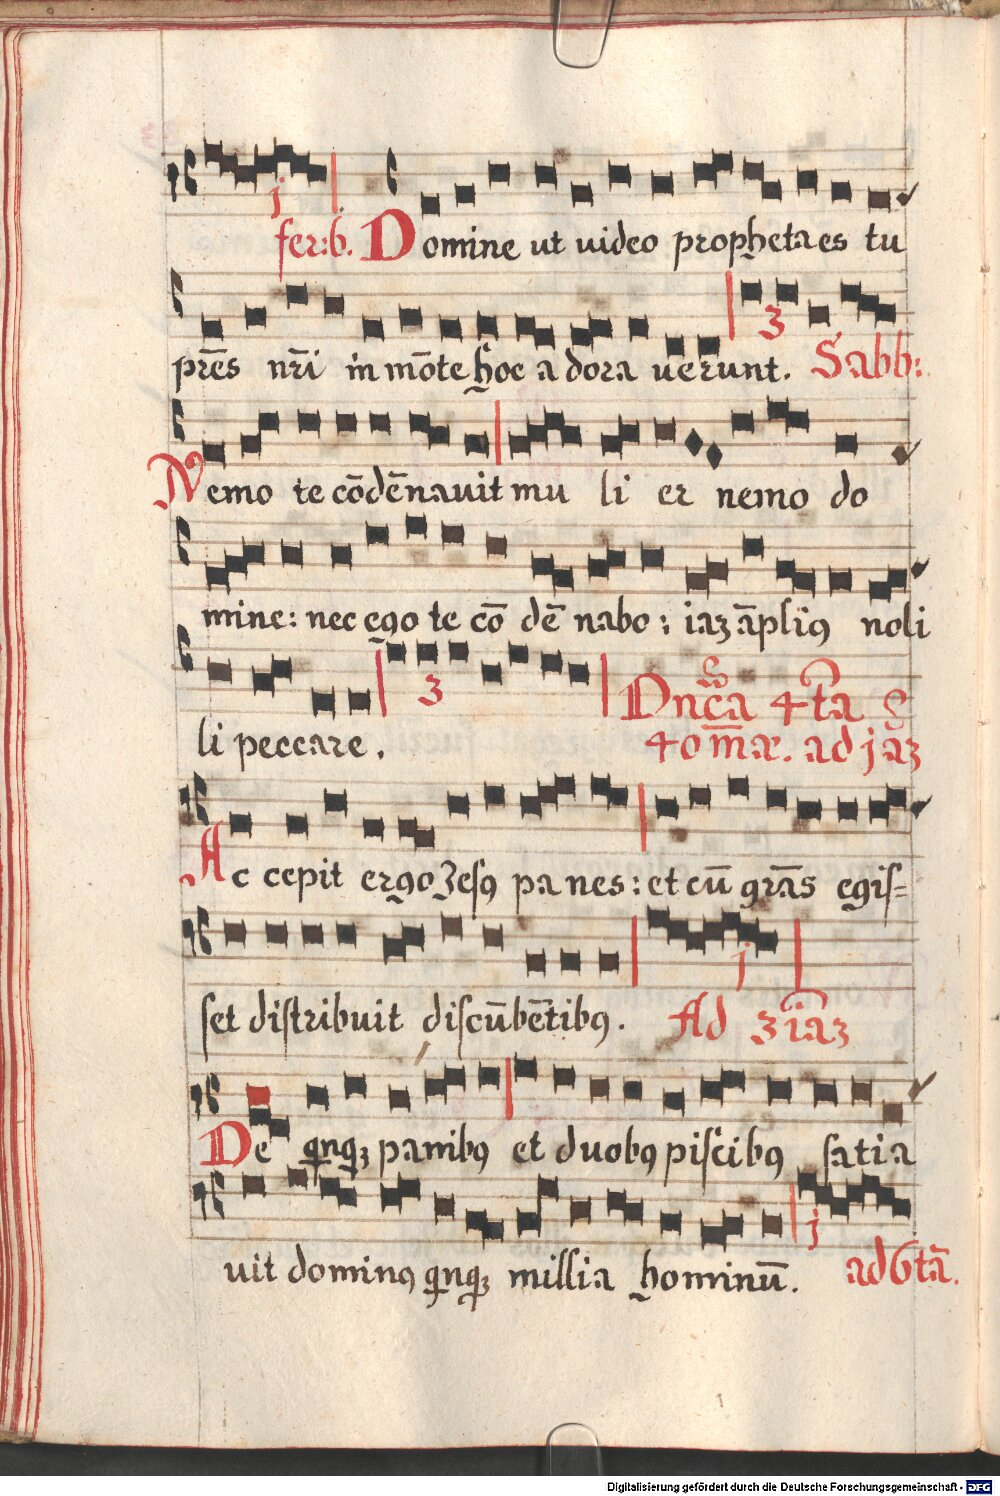 j
fer: 6. Domine ut uideo prophetaes tu
3
pr̄es nr̄i in mōte hoc a dora uerunt. Sabb:
Nemo te cōdēnauit mu li er nemo do
mine: nec ego te cō dē nabo: iaʒ āpliꝰ noli
3
li peccare. Dn̄ca 4ta
40 m̄æ. ad jāʒ
Ac cepit ergo Jesꝰ panes: et cū grās egis=
j
set distribuit discūbētibꝰ. Ad 3iāʒ
De qnqʒ panibꝰ et duobꝰ piscibꝰ satia
j
uit dominꝰ qnqʒ millia hominū. ad 6tā.
Digitalisierung gefördert durch die Deutsche Forschungsgemeinschaft - DFG